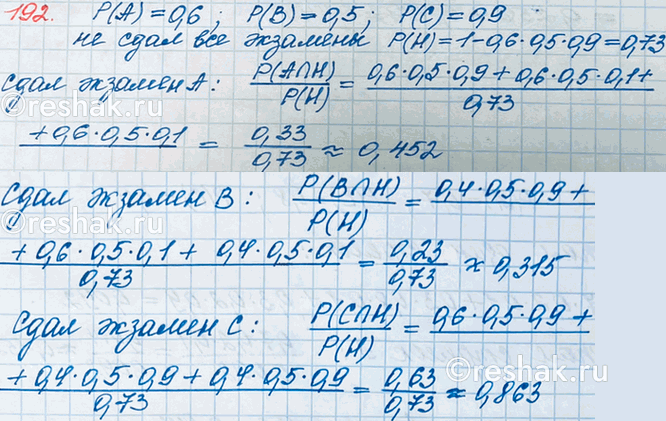 192. P(A)=0,6; P(B)=0,5; P(C)=0,9
не сдал все экзамены P(H)=1-0,6·0,5·0,9=0,73
сдал экзамен A: P(A∩H)/P(H) = 0,6·0,5·0,9+0,6·0,5·0,1+
+0,6·0,5·0,1/0,73 = 0,33/0,73 ≈ 0,452
сдал экзамен B: P(B∩H)/P(H) = 0,4·0,5·0,9+
+0,6·0,5·0,1+0,4·0,5·0,1/0,73 = 0,23/0,73 ≈ 0,315
сдал экзамен C: P(C∩H)/P(H) = 0,6·0,5·0,9+
+0,4·0,5·0,9+0,4·0,5·0,9/0,73 = 0,63/0,73 ≈ 0,863
©reshak.ru
©reshak.ru
©reshak.ru
©reshak.ru